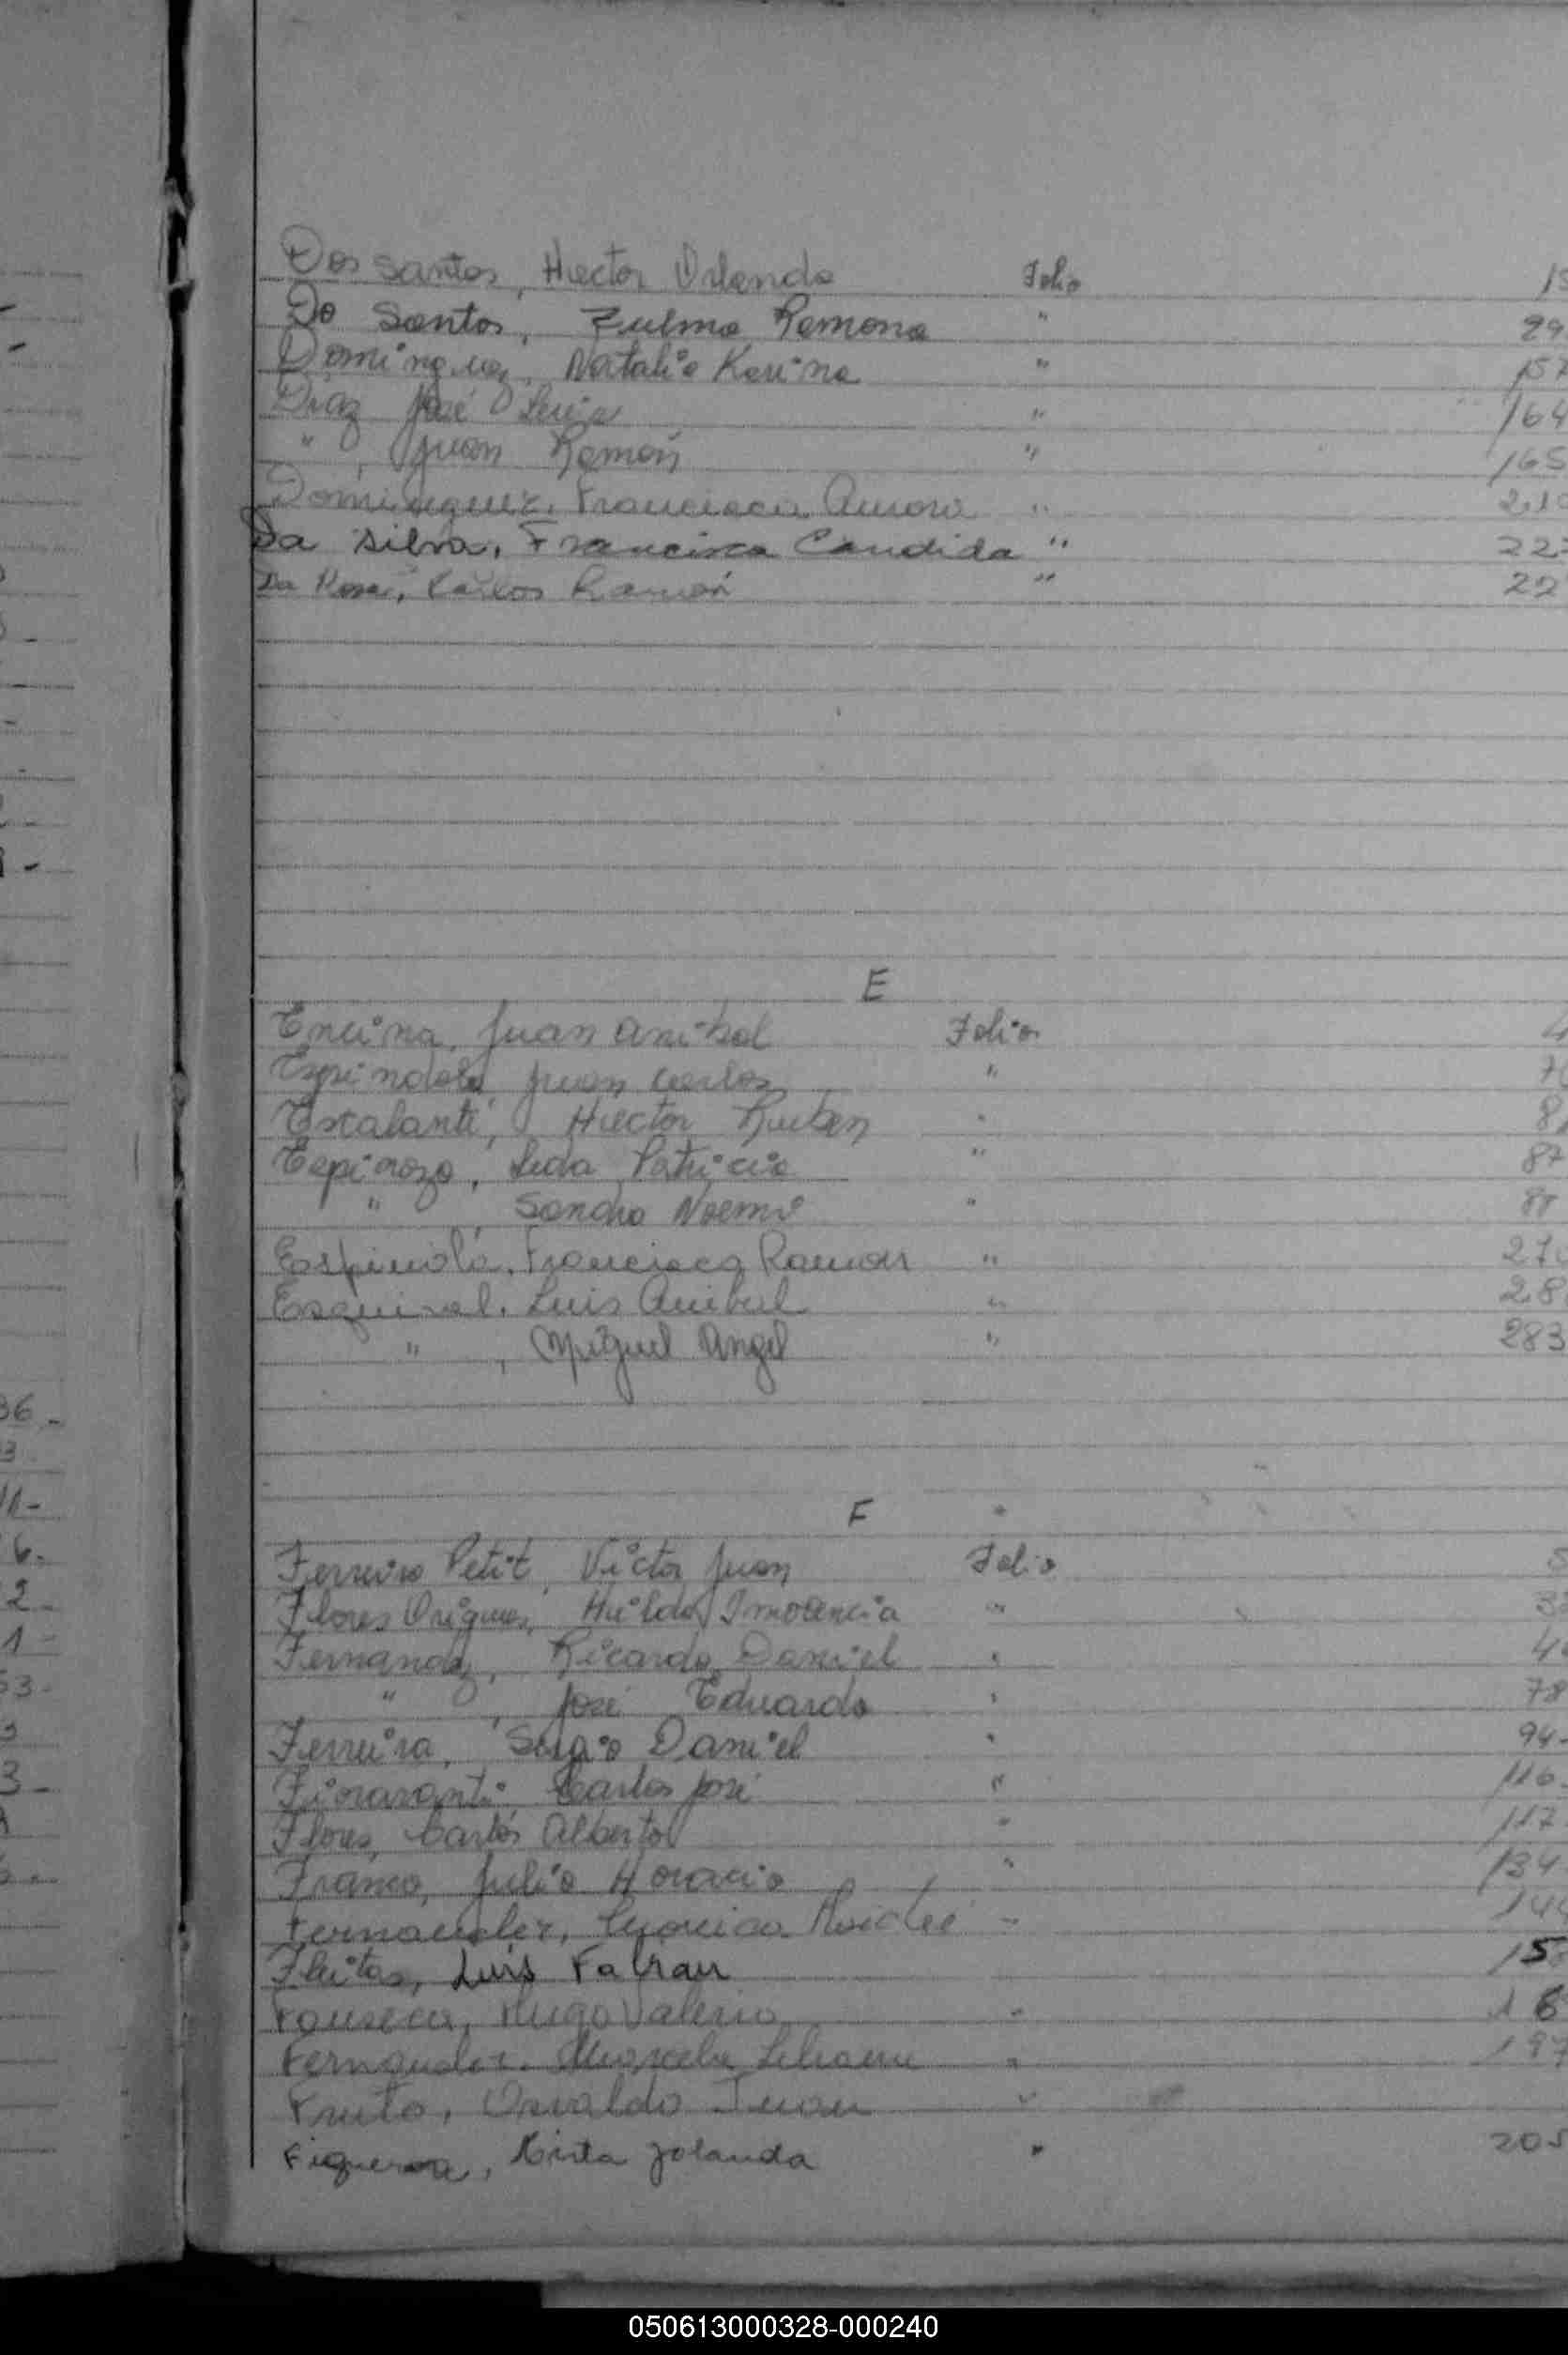 Dos santos, Hector Orlando Folio 15
Do Santos, Zulma Ramona " 29
Dominguez, Natalia Karina " 157
Diaz José Luis " 164
" , Juan Ramón " 165
Dominguez, Francisca Aurora " 21
Da Silva, Francisca Candida " 22
Da Rosa, Carlos Ramón " 22
E
Encina, Juan Anibal Folio 4
Espindola, Juan Carlos " 7
Escalante, Hector Ruben " 8
Espinoza, Leda Patricia " 87
" , Sandra Noemi " 88
Espinola, Francisca Ramon " 27
Esquivel, Luis Anibal " 28
" , Miguel Angel " 283
F
Ferreira Petit, Victor Juan Folio
Flores Origues, Hilda Inocencia " 3
Fernandez, Ricardo Daniel " 4
" , José Eduardo " 78
Ferreira, Sergio Daniel " 94-
Fioravanti Carlos José " 116
Flores, Carlos Alberto " 117
Franco, Julio Horacio " 134
Fernandez, Haidee " 14
Fleitas, Luis Fabian 15
Fonseca, Hugo Valerio " 16
Fernandez, Marcela Liliana " 197
Fruto, Osvaldo Juan "
Figueroa, Mirta Jolanda " 205
36 -
3
11-
6.
2-
1-
53-
3
3-
050613000328-000240